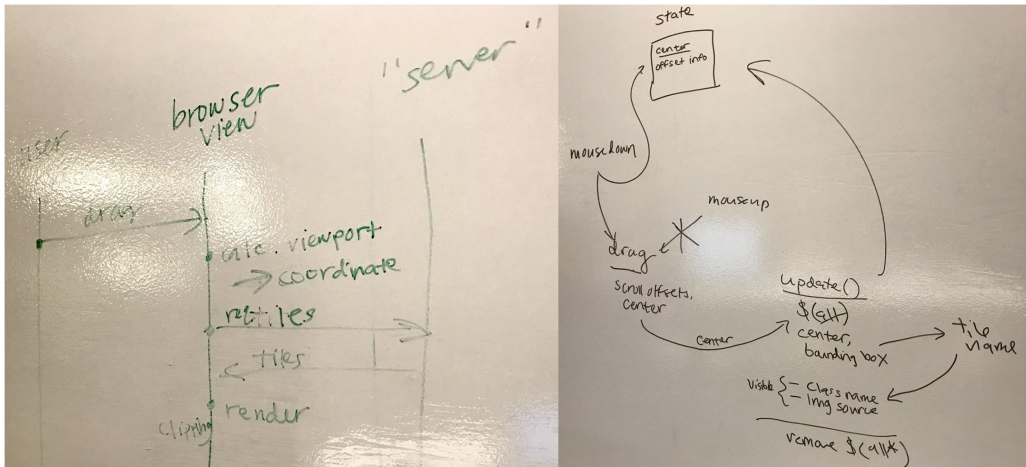 user
browser
view
"server"
drag
calc. viewport
→ coordinate
tiles
tiles
render
clipping
state
center
offset info
mousedown
mouseup
drag
scroll offsets,
center
center
update()
center,
bounding box
tile
name
visible { - class name
- img source
remove $(all*)